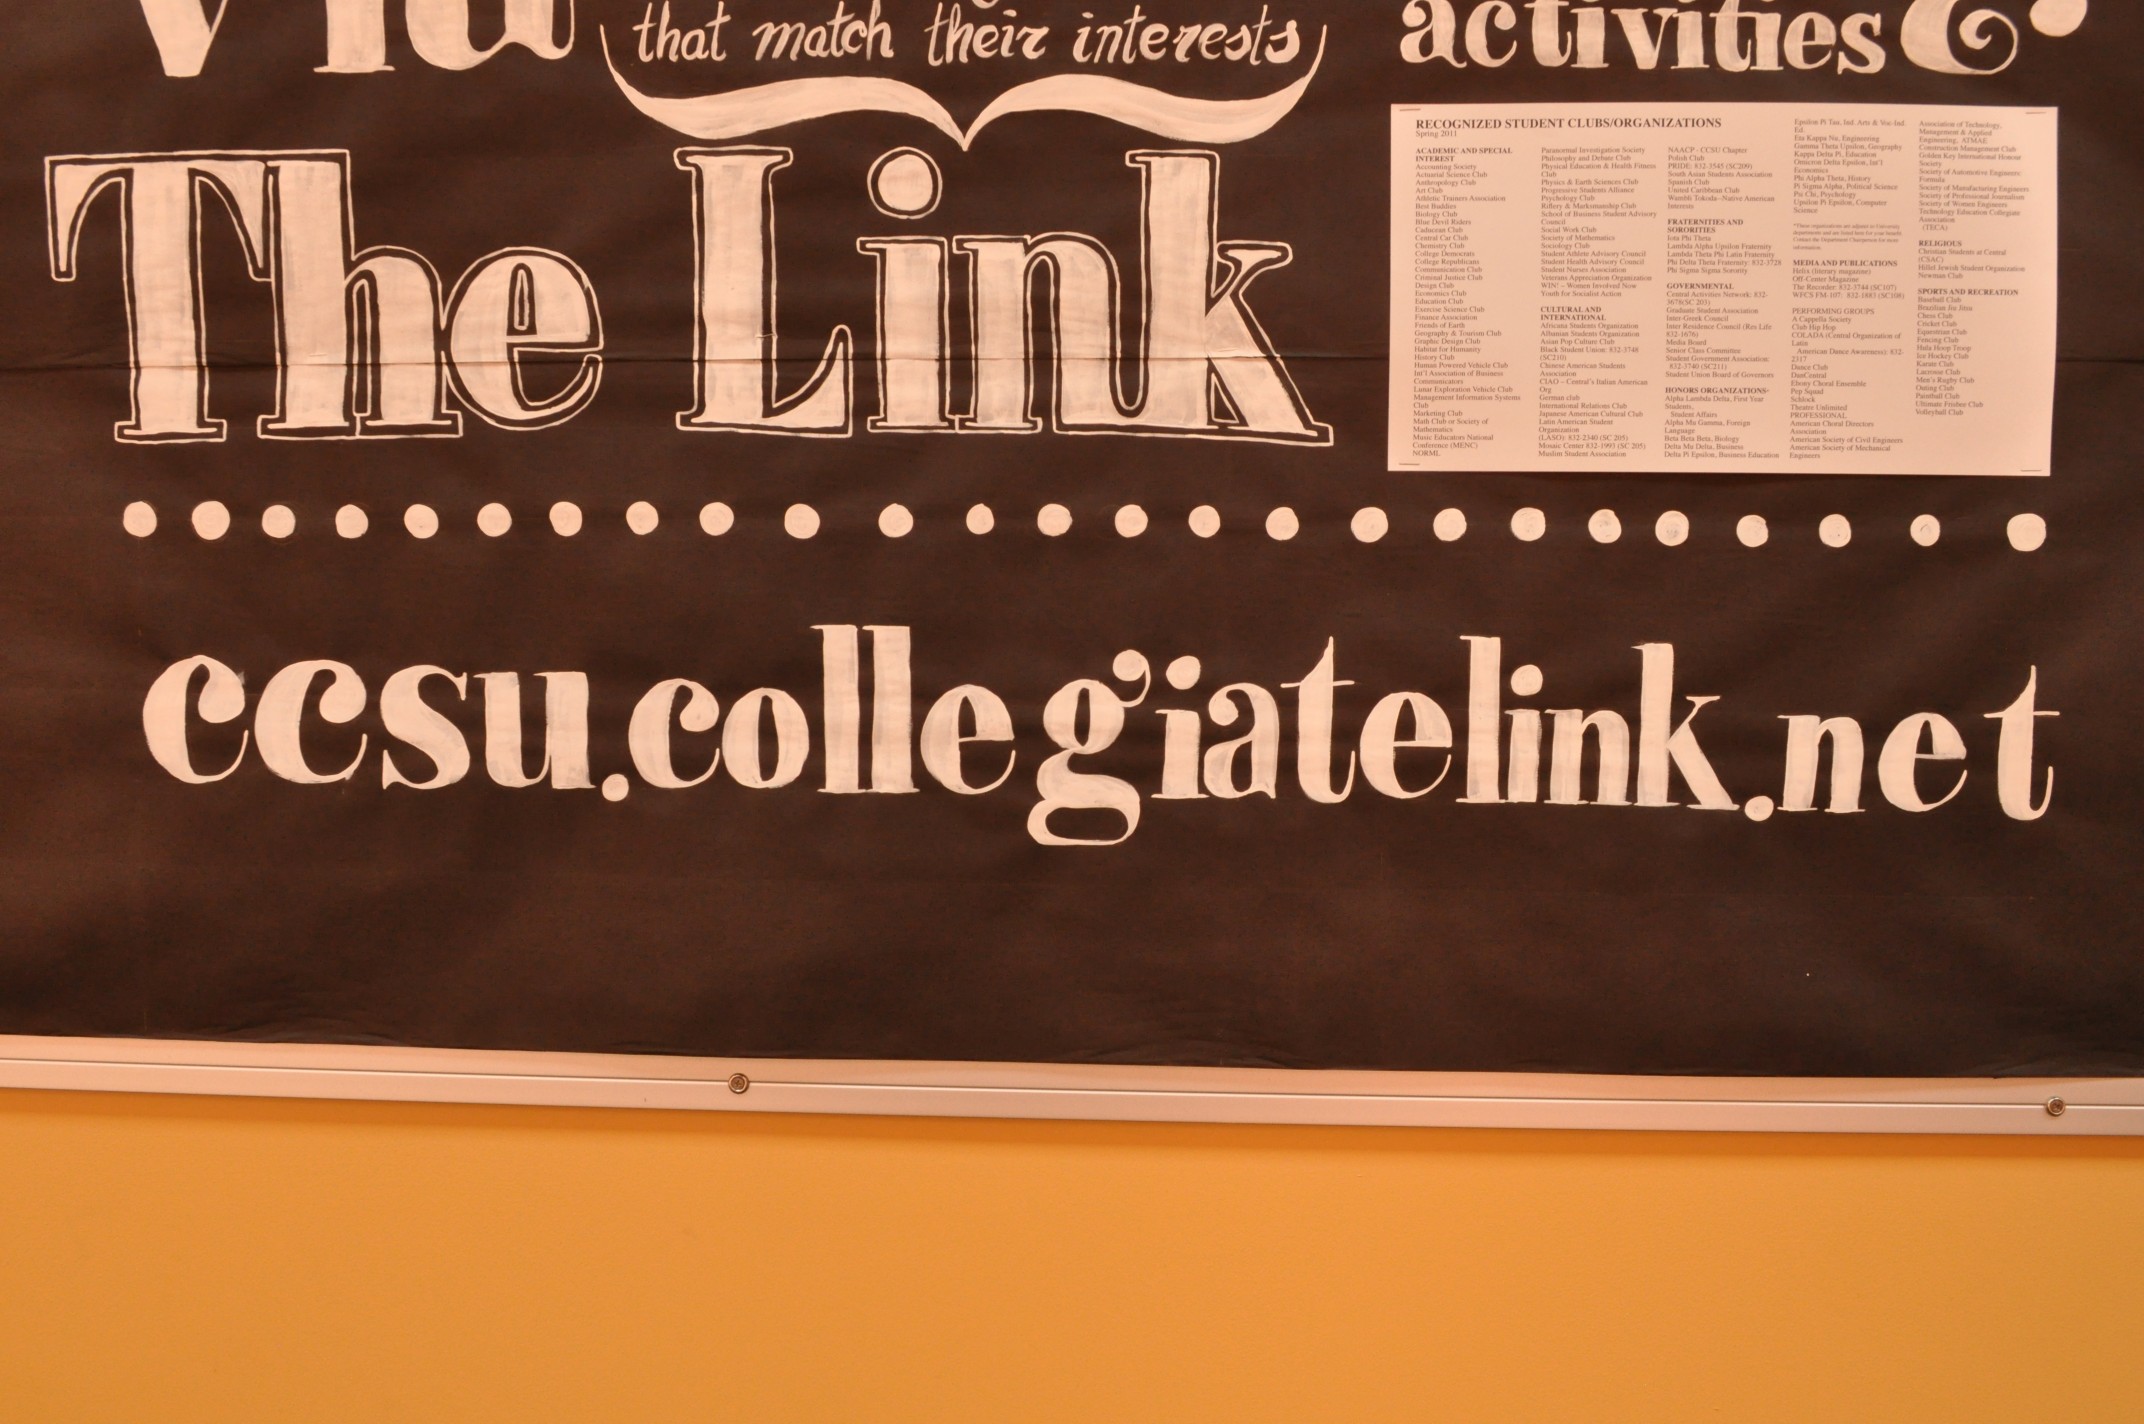 via
that match their interests
activities &
The Link
RECOGNIZED STUDENT CLUBS/ORGANIZATIONS
Spring 2011
ACADEMIC AND SPECIAL
INTEREST
Accounting Society
Actuarial Science Club
Anthropology Club
Art Club
Athletic Trainers Association
Best Buddies
Biology Club
Blue Devil Riders
Caducean Club
Central Car Club
Chemistry Club
College Democrats
College Republicans
Communication Club
Criminal Justice Club
Design Club
Economics Club
Education Club
Exercise Science Club
Finance Association
Friends of Earth
Geography & Tourism Club
Graphic Design Club
Habitat for Humanity
History Club
Human Powered Vehicle Club
Int'l Association of Business
Communicators
Lunar Exploration Vehicle Club
Management Information Systems
Club
Marketing Club
Math Club or Society of
Mathematics
Music Educators National
Conference (MENC)
NORML
Paranormal Investigation Society
Philosophy and Debate Club
Physical Education & Health Fitness
Club
Physics & Earth Sciences Club
Progressive Students Alliance
Psychology Club
Riflery & Marksmanship Club
School of Business Student Advisory
Council
Social Work Club
Society of Mathematics
Sociology Club
Student Athlete Advisory Council
Student Health Advisory Council
Student Nurses Association
Veterans Appreciation Organization
WIN! - Women Involved Now
Youth for Socialist Action
CULTURAL AND
INTERNATIONAL
Africana Students Organization
Albanian Students Organization
Asian Pop Culture Club
Black Student Union: 832-3748
(SC210)
Chinese American Students
Association
CIAO – Central's Italian American
Org
German club
International Relations Club
Japanese American Cultural Club
Latin American Student
Organization
(LASO): 832-2340 (SC 205)
Mosaic Center 832-1993 (SC 205)
Muslim Student Association
NAACP - CCSU Chapter
Polish Club
PRIDE: 832-3545 (SC209)
South Asian Students Association
Spanish Club
United Caribbean Club
Wambli Tokoda--Native American
Interests
FRATERNITIES AND
SORORITIES
Iota Phi Theta
Lambda Alpha Upsilon Fraternity
Lambda Theta Phi Latin Fraternity
Phi Delta Theta Fraternity: 832-3728
Phi Sigma Sigma Sorority
GOVERNMENTAL
Central Activities Network: 832-
3678(SC 203)
Graduate Student Association
Inter-Greek Council
Inter Residence Council (Res Life
832-1676)
Media Board
Senior Class Committee
Student Government Association:
832-3740 (SC211)
Student Union Board of Governors
HONORS ORGANIZATIONS-
Alpha Lambda Delta, First Year
Students,
Student Affairs
Alpha Mu Gamma, Foreign
Language
Beta Beta Beta, Biology
Delta Mu Delta, Business
Delta Pi Epsilon, Business Education
Epsilon Pi Tau, Ind. Arts & Voc-Ind.
Ed.
Eta Kappa Nu, Engineering
Gamma Theta Upsilon, Geography
Kappa Delta Pi, Education
Omicron Delta Epsilon, Int'l
Economics
Phi Alpha Theta, History
Pi Sigma Alpha, Political Science
Psi Chi, Psychology
Upsilon Pi Epsilon, Computer
Science
*These organizations are adjunct to University
departments and are listed here for your benefit.
Contact the Department Chairperson for more
information.
MEDIA AND PUBLICATIONS
Helix (literary magazine)
Off-Center Magazine
The Recorder: 832-3744 (SC107)
WFCS FM-107: 832-1883 (SC108)
PERFORMING GROUPS
A Cappella Society
Club Hip Hop
COLADA (Central Organization of
Latin
American Dance Awareness): 832-
2317
Dance Club
DanCentral
Ebony Choral Ensemble
Pep Squad
Schlock
Theater Unlimited
PROFESSIONAL
American Choral Directors
Association
American Society of Civil Engineers
American Society of Mechanical
Engineers
Association of Technology,
Management & Applied
Engineering, ATMAE
Construction Management Club
Golden Key International Honour
Society
Society of Automotive Engineers:
Formula
Society of Manufacturing Engineers
Society of Professional Journalism
Society of Women Engineers
Technology Education Collegiate
Association
(TECA)
RELIGIOUS
Christian Students at Central
(CSAC)
Hillel Jewish Student Organization
Newman Club
SPORTS AND RECREATION
Baseball Club
Brazilian Jiu Jitsu
Chess Club
Cricket Club
Equestrian Club
Fencing Club
Hula Hoop Troop
Ice Hockey Club
Karate Club
Lacrosse Club
Men's Rugby Club
Outing Club
Paintball Club
Ultimate Frisbee Club
Volleyball Club
ccsu.collegiatelink.net